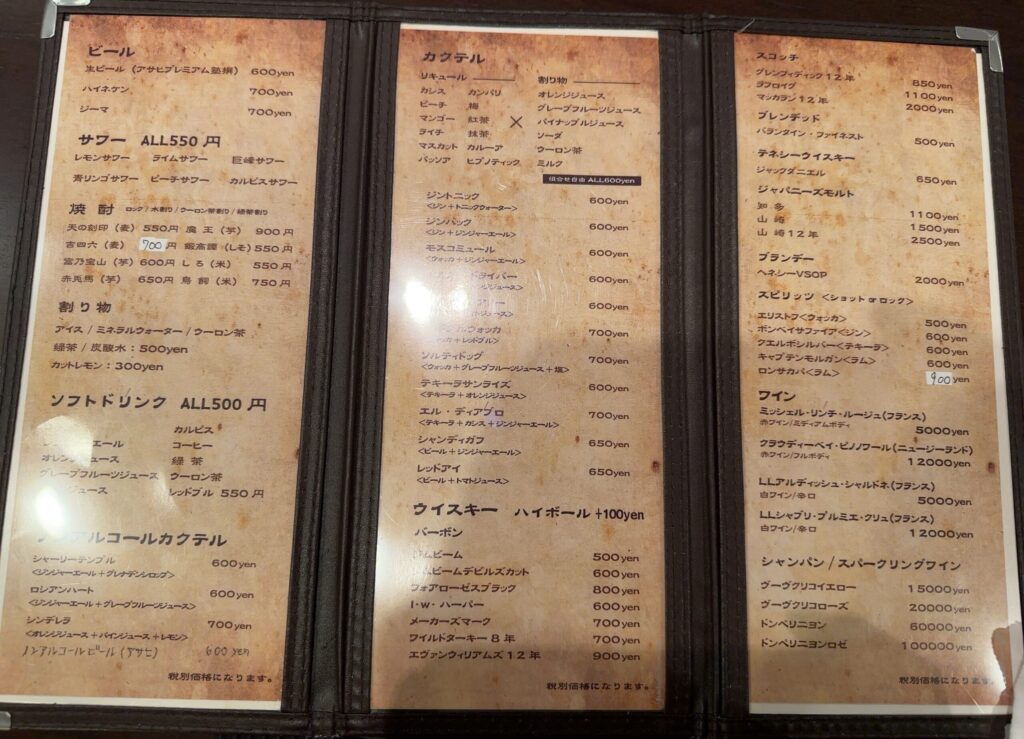 ビール
生ビール(アサヒプレミアム熟撰) 600yen
ハイネケン 700yen
ジーマ 700yen
サワー ALL550円
レモンサワー ライムサワー 巨峰サワー
青リンゴサワー ピーチサワー カルピスサワー
焼酎 ロック/水割り/ウーロン茶割り/緑茶割り
天の刻印(麦) 550円 魔王(芋) 900円
吉四六(麦) 700円 鍛高譚(しそ) 550円
富乃宝山(芋) 600円 しろ(米) 550円
赤兎馬(芋) 650円 鳥飼(米) 750円
割り物
アイス/ミネラルウォーター/ウーロン茶
緑茶/炭酸水:500yen
カットレモン:300yen
ソフトドリンク ALL500円
カルピス
エール コーヒー
オレンジジュース 緑茶
グレープフルーツジュース ウーロン茶
ジュース レッドブル 550円
アルコールカクテル
シャーリーテンプル 600yen
<ジンジャーエール+グレナデンシロップ>
ロシアンハート 600yen
<ジンジャーエール+グレープフルーツジュース>
シンデレラ 700yen
<オレンジジュース+パインジュース+レモン>
ノンアルコールビール(アサヒ) 600yen
税別価格になります。
カクテル
リキュール 割り物
カシス カンパリ オレンジジュース
ピーチ 梅 グレープフルーツジュース
マンゴー 紅茶 × パイナップルジュース
ライチ 抹茶 ソーダ
マスカット カルーア ウーロン茶
パッソア ヒプノティック ミルク
組合せ自由 ALL600yen
ジントニック 600yen
<ジン+トニックウォーター>
ジンバック 600yen
<ジン+ジンジャーエール>
モスコミュール 600yen
<ウォッカ+ジンジャーエール>
ドライバー 600yen
ジュース>
600yen
ウォッカ 700yen
+レッドブル>
ソルティドッグ 700yen
<ウォッカ+グレープフルーツジュース+塩>
テキーラサンライズ 600yen
<テキーラ+オレンジジュース>
エル・ディアブロ 700yen
<テキーラ+カシス+ジンジャーエール>
シャンディガフ 650yen
<ビール+ジンジャーエール>
レッドアイ 650yen
<ビール+トマトジュース>
ウイスキー ハイボール+100yen
バーボン
ビーム 500yen
ビームデビルズカット 600yen
フォアローゼスブラック 800yen
I・w・ハーパー 600yen
メーカーズマーク 700yen
ワイルドターキー8年 700yen
エヴァンウィリアムズ12年 900yen
税別価格になります。
スコッチ
グレンフィディック12年 850yen
ラフロイグ 1100yen
マッカラン12年 2000yen
ブレンデッド
バランタイン・ファイネスト 500yen
テネシーウイスキー
ジャックダニエル 650yen
ジャパニーズモルト
知多 1100yen
山崎 1500yen
山崎12年 2500yen
ブランデー
ヘネシーVSOP 2000yen
スピリッツ <ショット or ロック>
エリストフ<ウォッカ> 500yen
ボンベイサファイア<ジン> 600yen
クエルボシルバー<テキーラ> 600yen
キャプテンモルガン<ラム> 600yen
ロンサカパ<ラム> 900yen
ワイン
ミッシェル・リンチ・ルージュ(フランス)
赤ワイン/ミディアムボディ 5000yen
クラウディーベイ・ピノノワール(ニュージーランド)
赤ワイン/フルボディ 12000yen
LLアルディッシュ・シャルドネ(フランス)
白ワイン/辛口 5000yen
LLシャブリ・プルミエ・クリュ(フランス)
白ワイン/辛口 12000yen
シャンパン/スパークリングワイン
ヴーヴクリコイエロー 15000yen
ヴーヴクリコローズ 20000yen
ドンペリニヨン 60000yen
ドンペリニヨンロゼ 100000yen
税別価格になります。